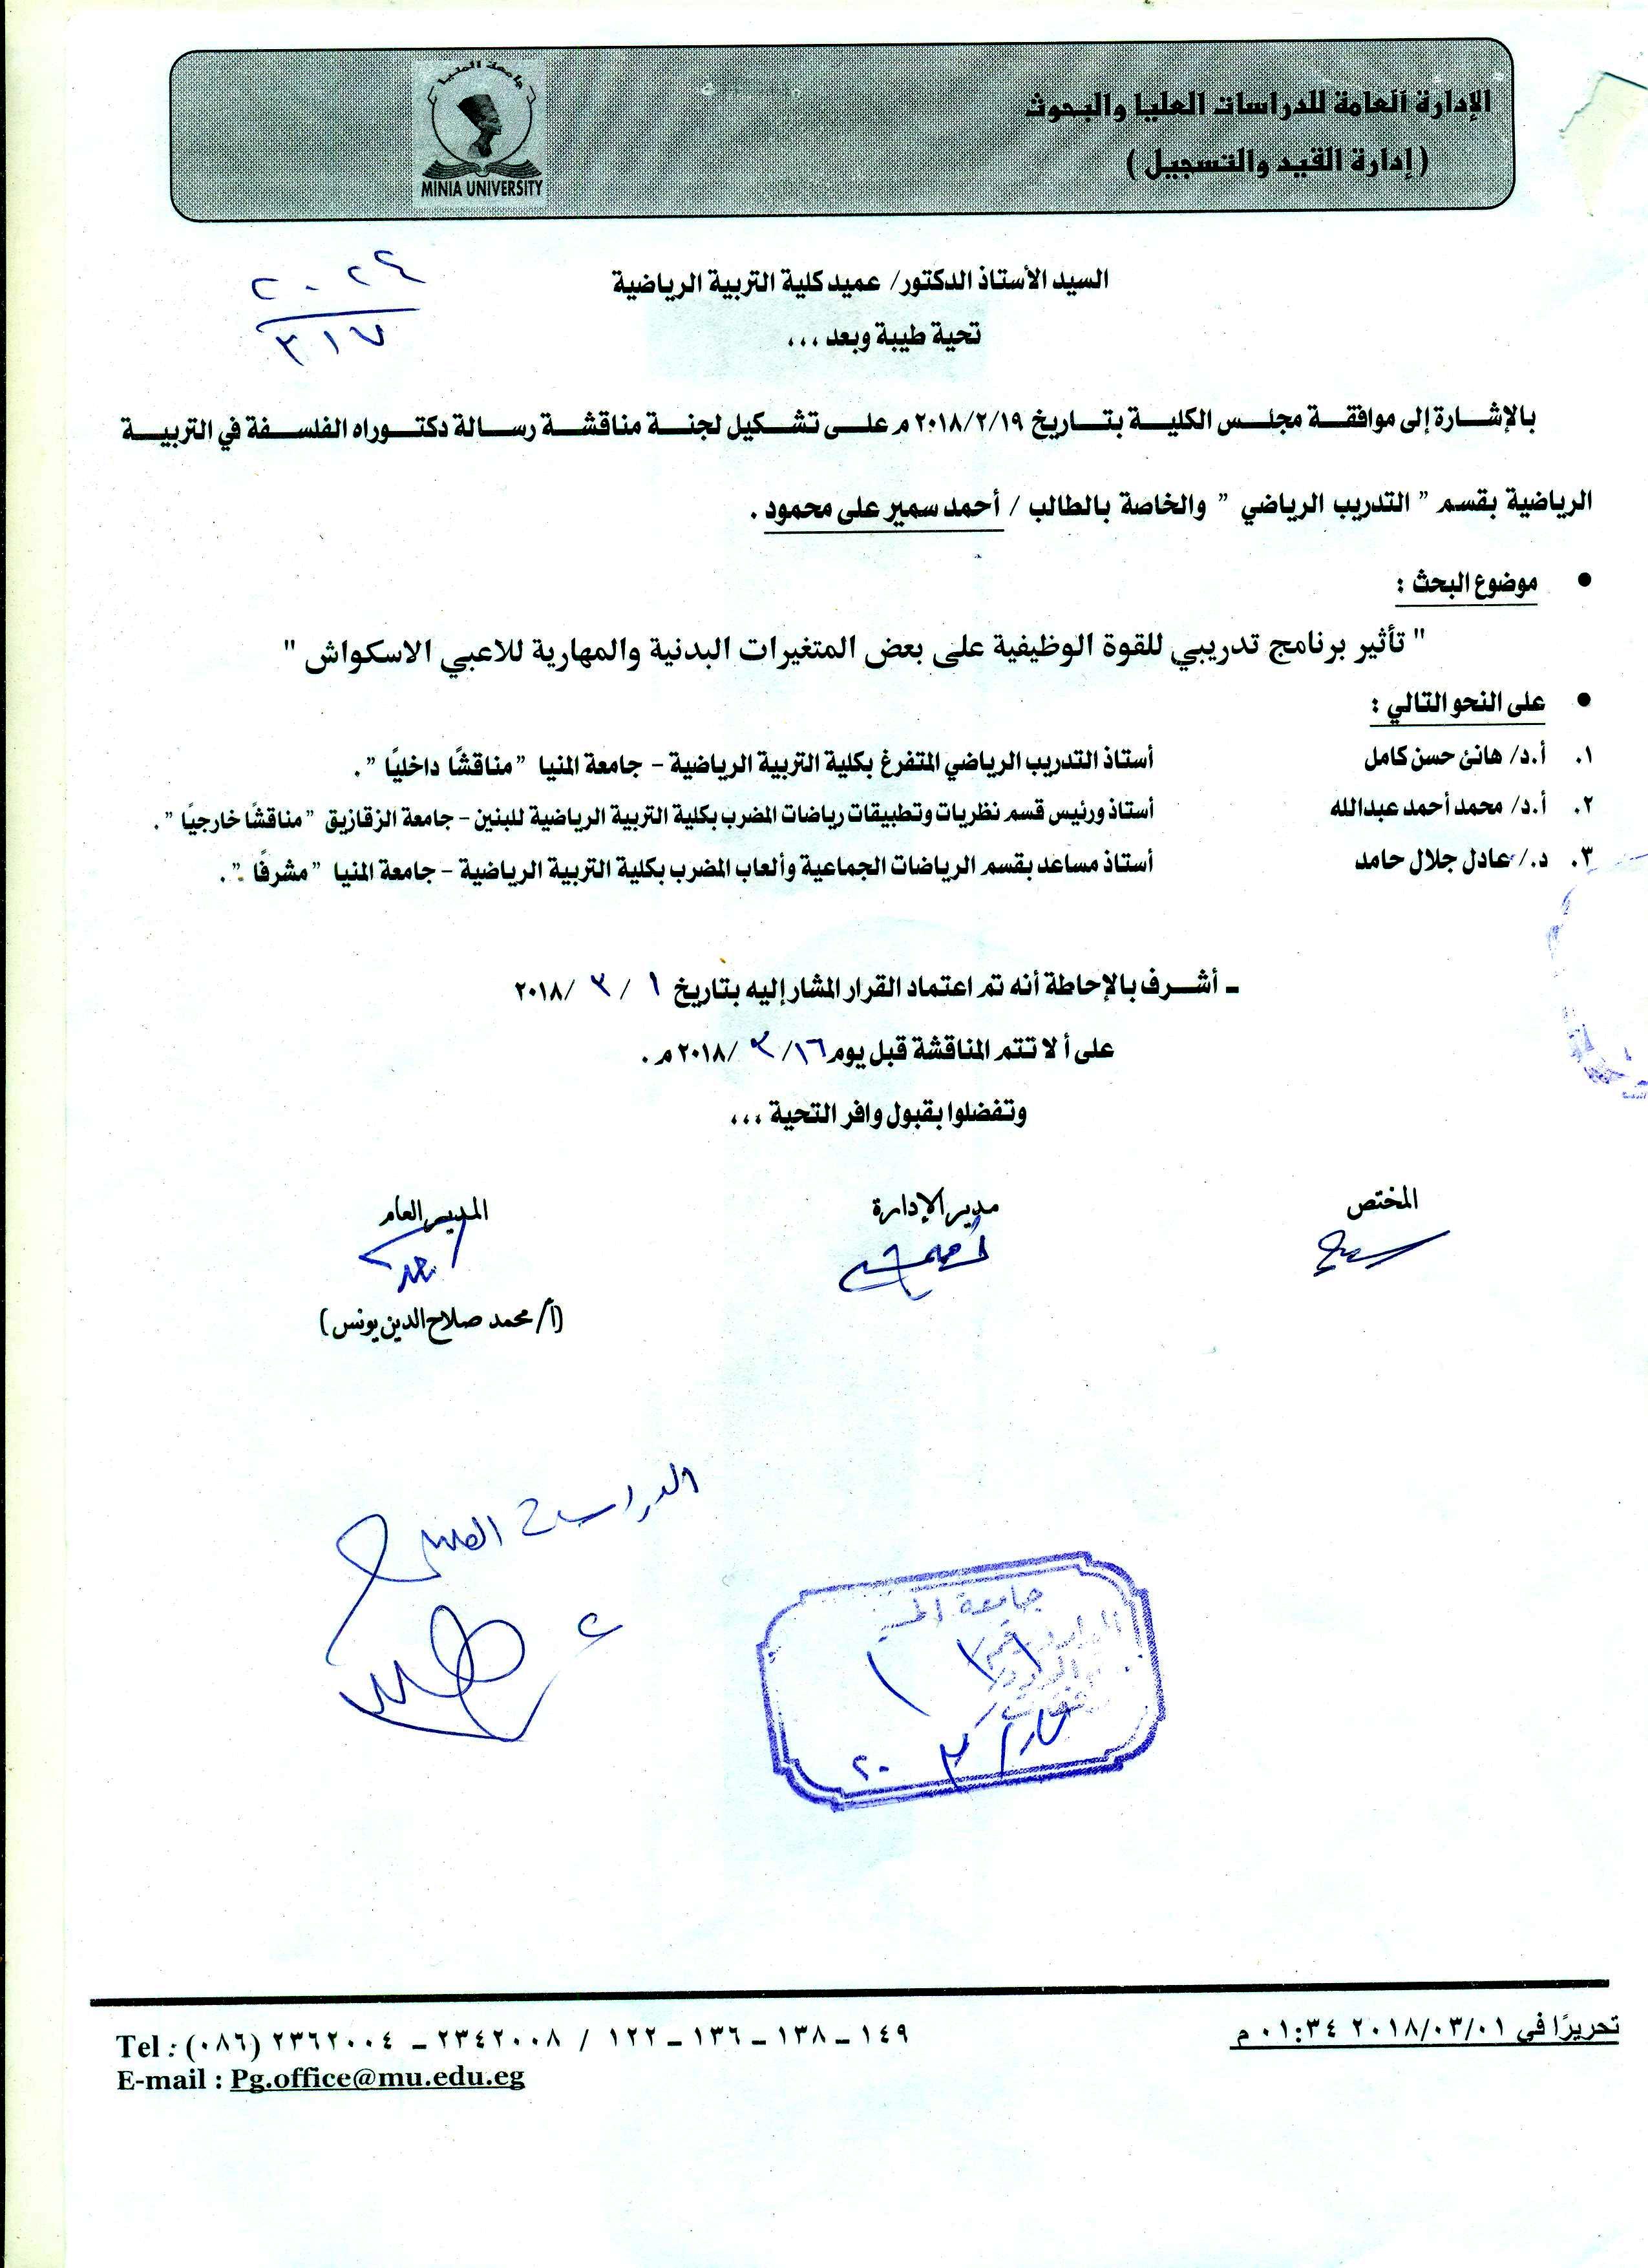 الإدارة العامة للدراسات العليا والبحوث
( إدارة القيد والتسجيل )
جامعة المنيا
MINIA UNIVERSITY
السيد الأستاذ الدكتور/ عميد كلية التربية الرياضية
تحية طيبة وبعد ...
بالإشارة إلى موافقة مجلس الكلية بتاريخ ٢٠١٨/٢/١٩ م على تشكيل لجنة مناقشة رسالة دكتوراه الفلسفة في التربية
الرياضية بقسم " التدريب الرياضي " والخاصة بالطالب / أحمد سمير على محمود .
• موضوع البحث :
" تأثير برنامج تدريبي للقوة الوظيفية على بعض المتغيرات البدنية والمهارية للاعبي الاسكواش "
• على النحو التالي :
١. أ.د/ هانئ حسن كامل أستاذ التدريب الرياضي المتفرغ بكلية التربية الرياضية – جامعة المنيا " مناقشًا داخليًا " .
٢. أ.د/ محمد أحمد عبدالله أستاذ ورئيس قسم نظريات وتطبيقات رياضات المضرب بكلية التربية الرياضية للبنين – جامعة الزقازيق " مناقشًا خارجيًا " .
٣. د./ عادل جلال حامد أستاذ مساعد بقسم الرياضات الجماعية وألعاب المضرب بكلية التربية الرياضية – جامعة المنيا " مشرفًا " .
ـ أشرف بالإحاطة أنه تم اعتماد القرار المشار إليه بتاريخ ١ / ٣ /٢٠١٨
على أ لا تتم المناقشة قبل يوم ١٦/ ٣ /٢٠١٨ م .
وتفضلوا بقبول وافر التحية ...
المختص مدير الإدارة المدير العام
(أ/ محمد صلاح الدين يونس)
الدراسات العليا
جامعة
تحريرًا في ٢٠١٨/٠٣/٠١ ٠١:٣٤ م
Tel : (٠٨٦) ٢٣٦٢٠٠٤ – ٢٣٤٢٠٠٨ / ١٢٢ – ١٣٦ – ١٣٨ – ١٤٩
E-mail : Pg.office@mu.edu.eg